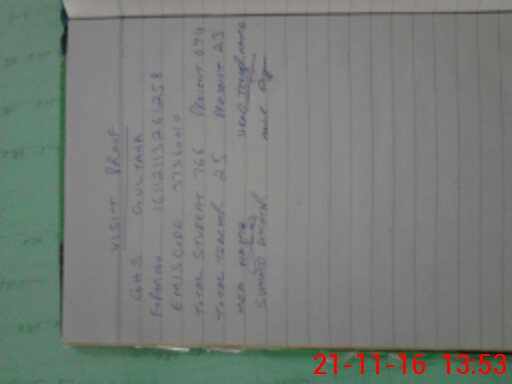 VISIT PROOF
GGHS GULYANA
FORM NO 16112113261258
EMISCODE 37360010
TOTAL STUDENT 766 PRESENT 694
TOTAL TEACHER 25 PRESENT 23
MEA NAME HEAD
21-11-16 13:53